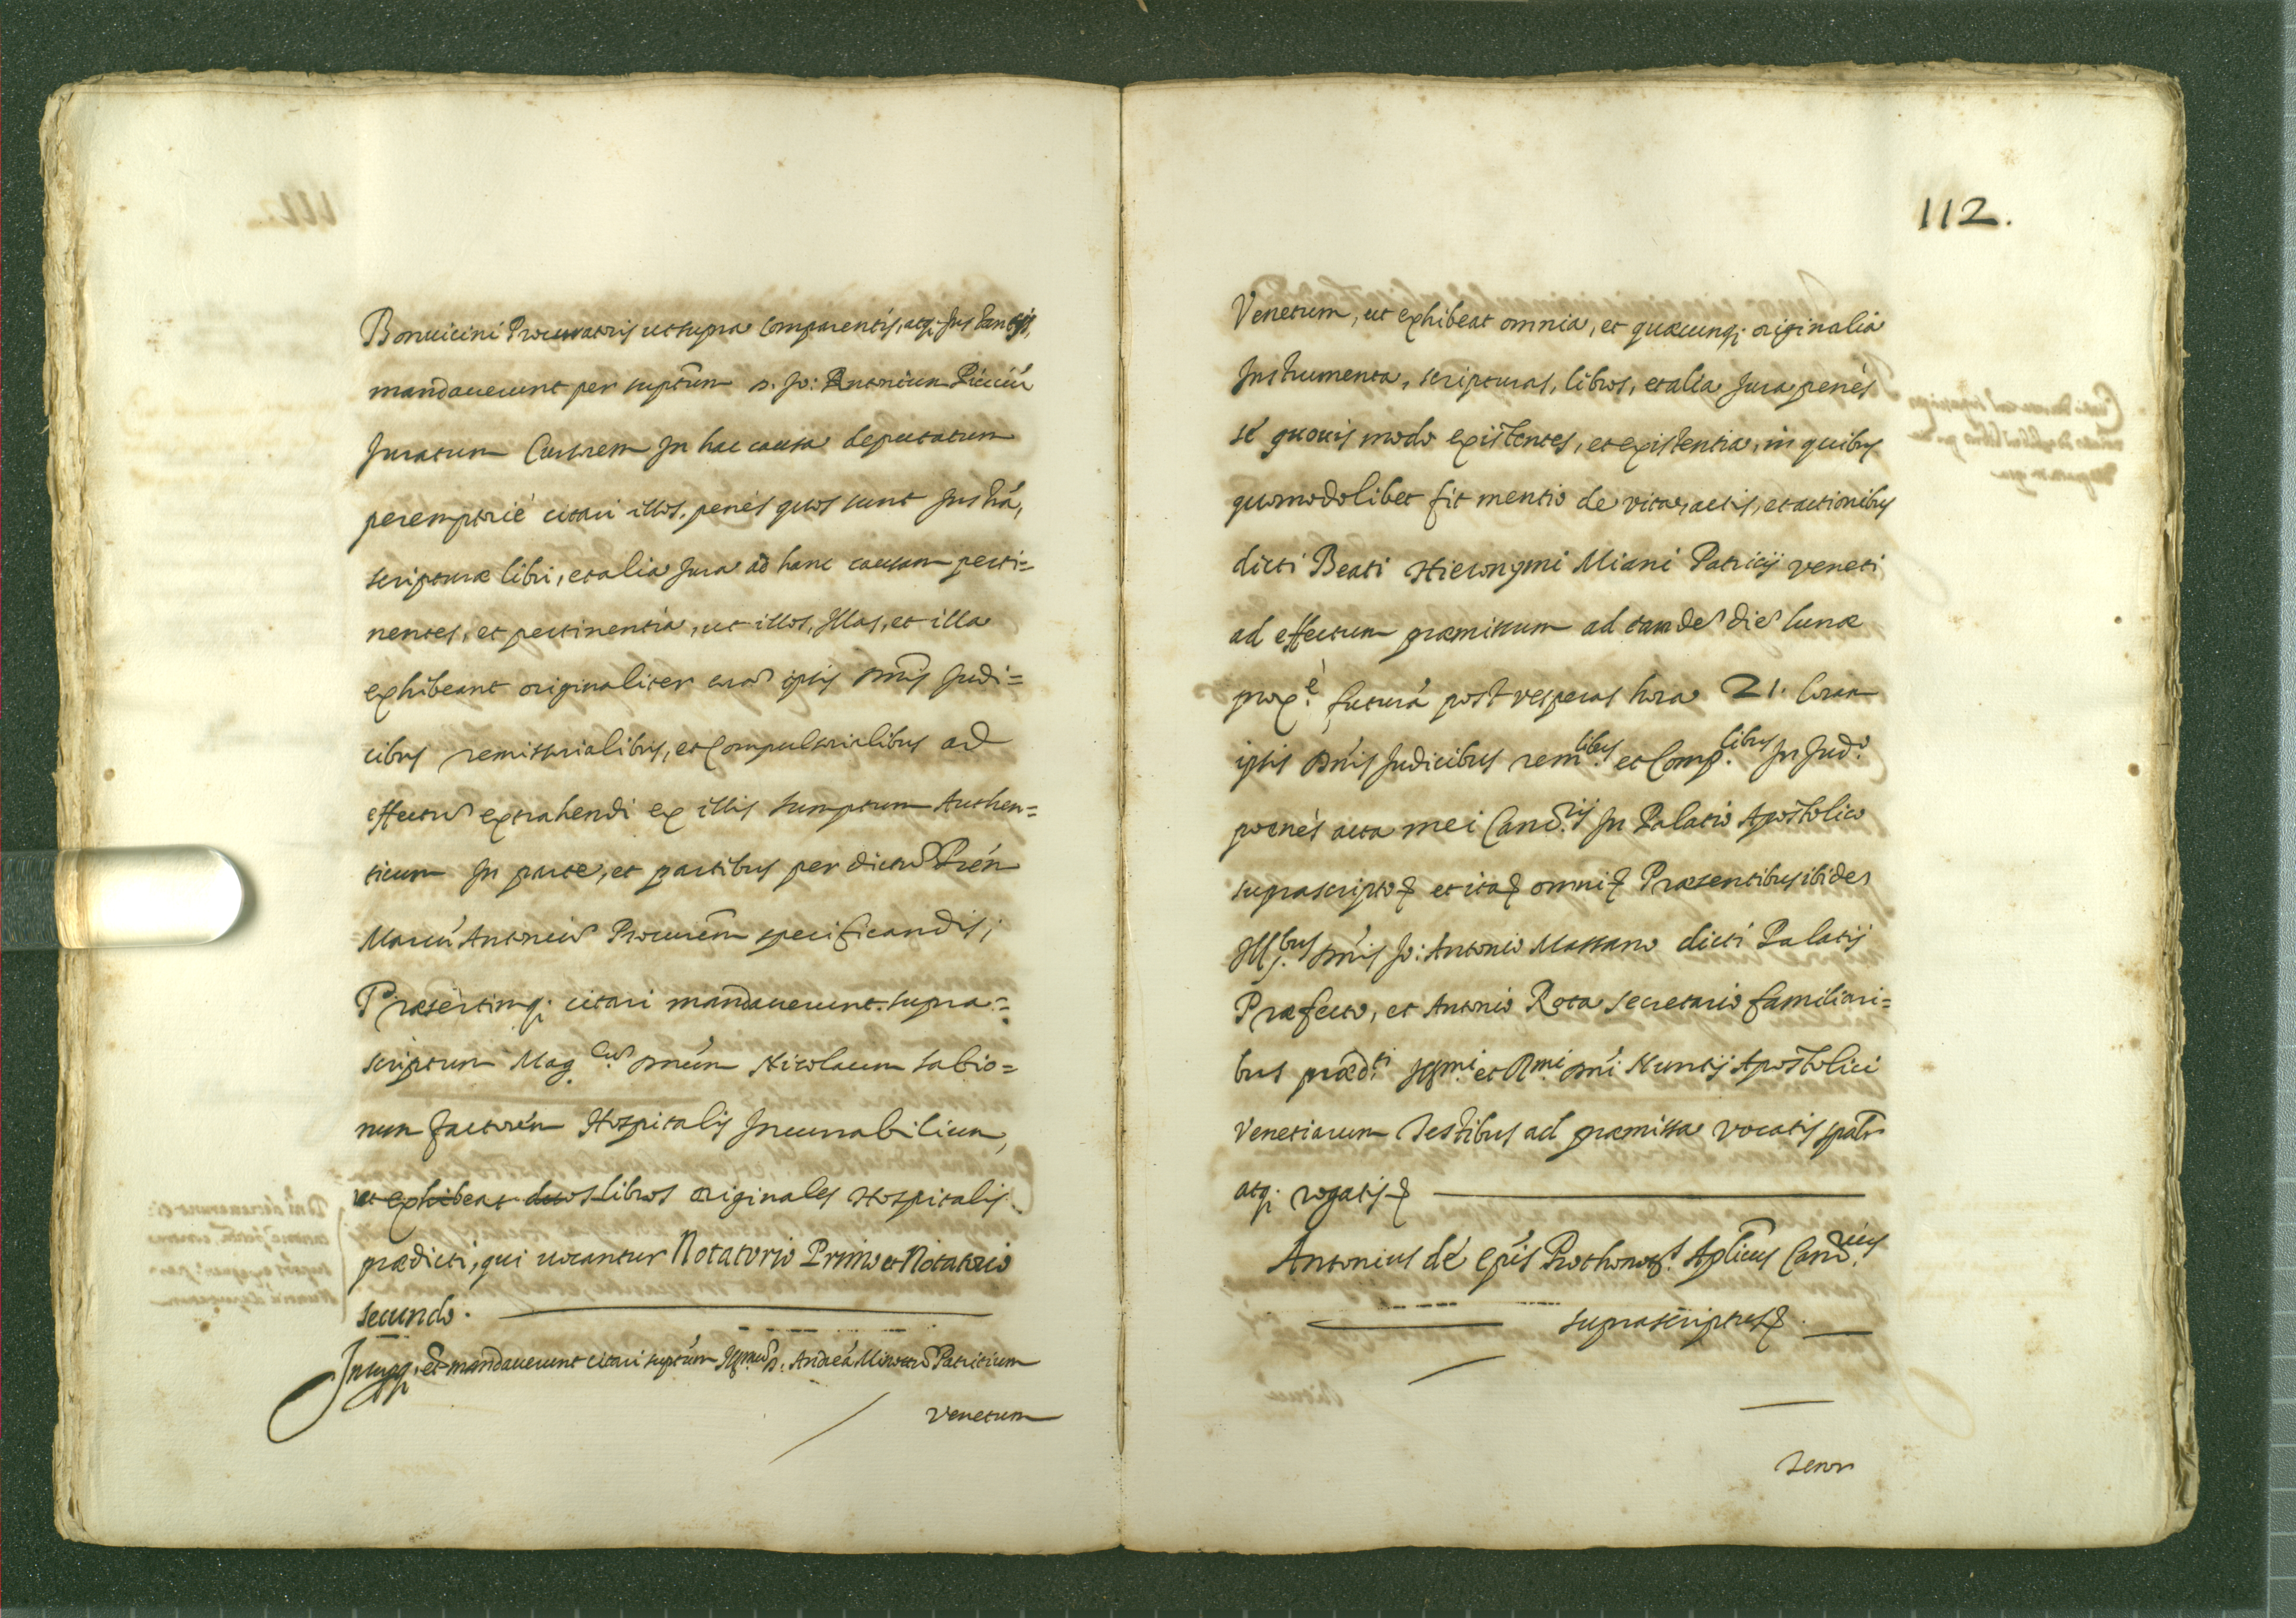 Bonuicini Procuratoris ut supra comparentis, atq; Instantis,
mandauerunt per suptum D. Jo: Antonium Picciu
Juratum Cursorem In hac causa deputatum
peremptorie citari illos, penes quos sunt Instra,
scripturæ libri, et alia Jura ad hanc causam perti=
nentes, et pertinentia, ut illos, Illas, et illa
exhibeant originaliter cora ipsis Dnis Judi=
cibus remissorialibus, et Compulsorialibus ad
effectu extrahendi ex illis sumptum Authen=
ticum In parte, et partibus per dictu Pren
Marcu Antoniu Procurem specificandis;
Præsertimq; citari mandauerunt supra=
scriptum Mag.cum Dnum Nicolaum Sabio=
num factorem Hospitalis Incurabilium,
ut exhibeat duos libros originales Hospitalis
prædicti, qui uocantur Notatorio Primo et Notatorio
secundo.
Insupq; et mandauerunt citari suptum Ill.mu D. Andrea Minottu Patritium
Venetum
112.
Venetum, ut exhibeat omnia, et quæcunq; originalia
Instrumenta, scripturas, libros, et alia Jura penès
sé quouis modo existentes, et existentia, in quibus
quomodolibet fit mentio de vita, actis, et actionibus
dicti Beati Hieronymi Miani Patricij veneti
ad effectum præmissum ad eande die lunæ
prox.è futura post vesperas hora 21. Coram
ipsis Dnis Judicibus rem.libus et Comp.libus In Jud.o
poenès acta mei Canc.rij In Palatio Apostolico
suprascripto et ita omni Præsentibus ibidem
Ill.bus Dnis Jo: Antonio Massano dicti Palatij
Præfecto, et Antonio Rota secretario familiari=
bus præd.ti Ill.mi et R.mi Dni Nuntij Apostolici
Venetiarum Testibus ad præmissa vocatis spalr
atq; rogatis
Antonius dé Epis Prothonot.s Aplicus Canc.rius
suprascriptus.
Tenor